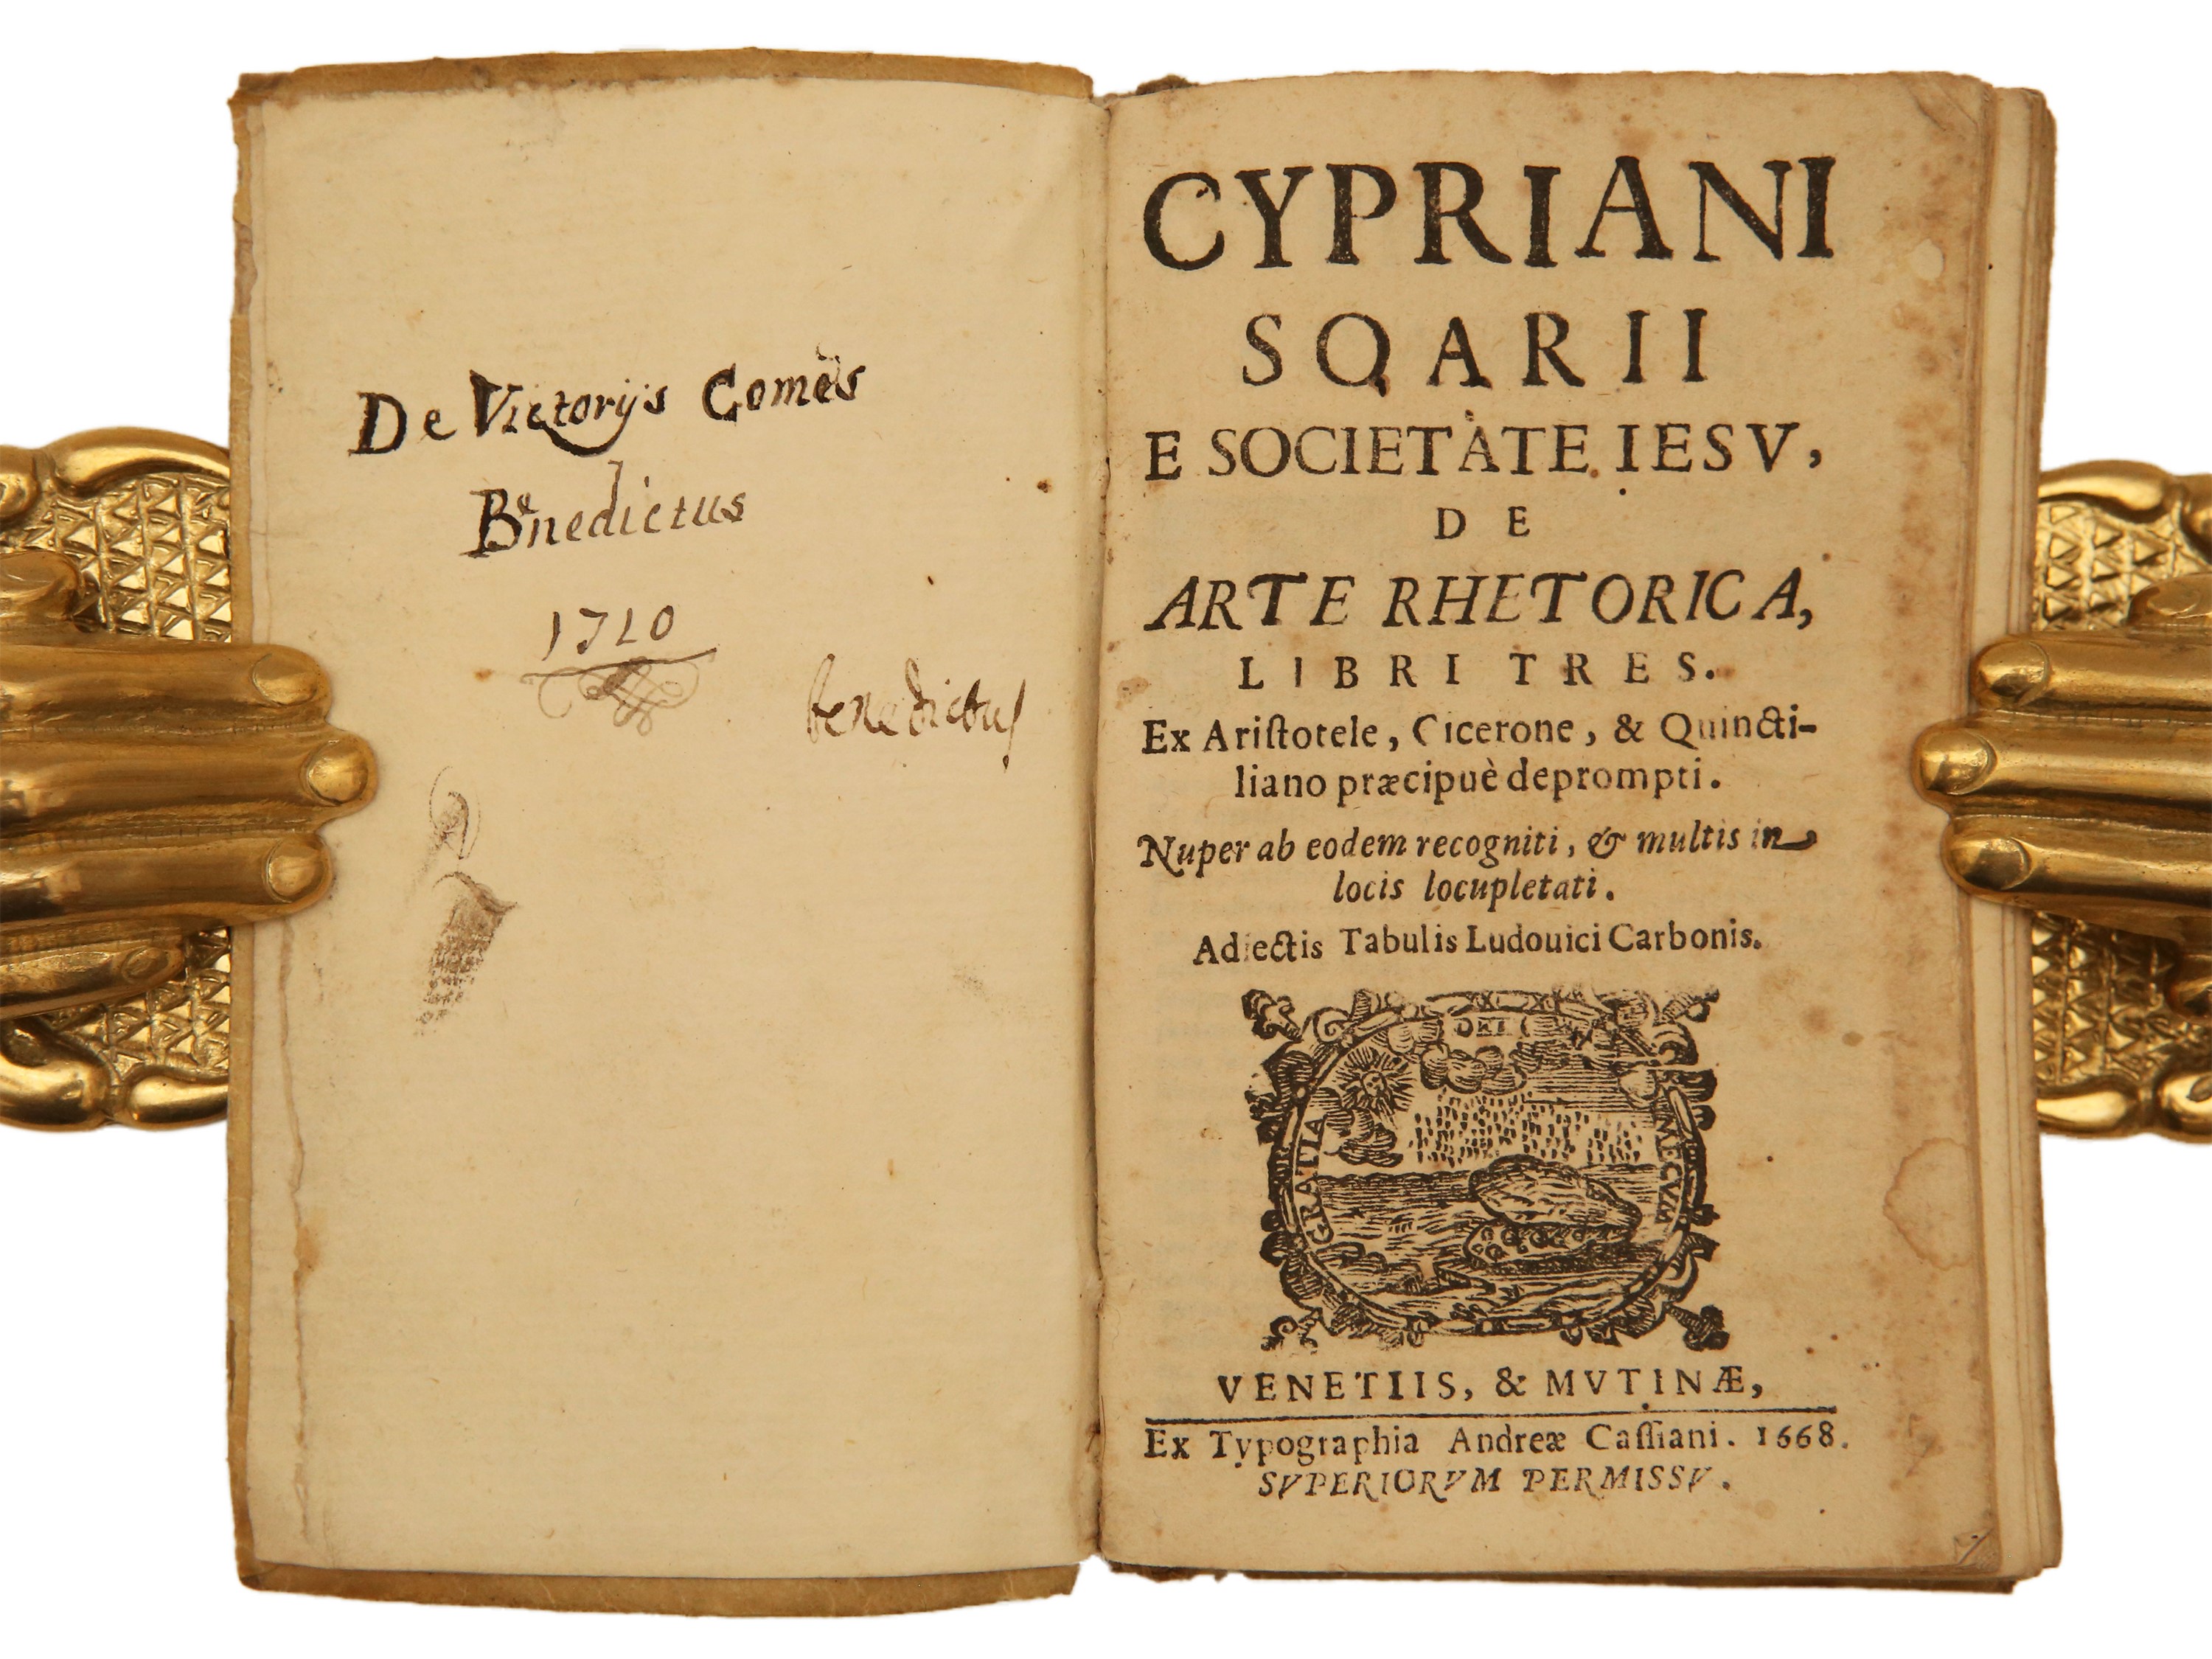 De Victorijs Comes
Benedictus
1710
benedictus
CYPRIANI
SOARII
E SOCIETATE IESV,
DE
ARTE RHETORICA,
LIBRI TRES.
Ex Ariſtotele, Cicerone, & Quincti-
liano præcipuè deprompti.
Nuper ab eodem recogniti, & multis in
locis locupletati.
Adiectis Tabulis Ludouici Carbonis.
DEI
GRATIA
MECVM
VENETIIS, & MVTINÆ,
Ex Typographia Andreæ Caſſiani. 1668.
SVPERIORVM PERMISSV.